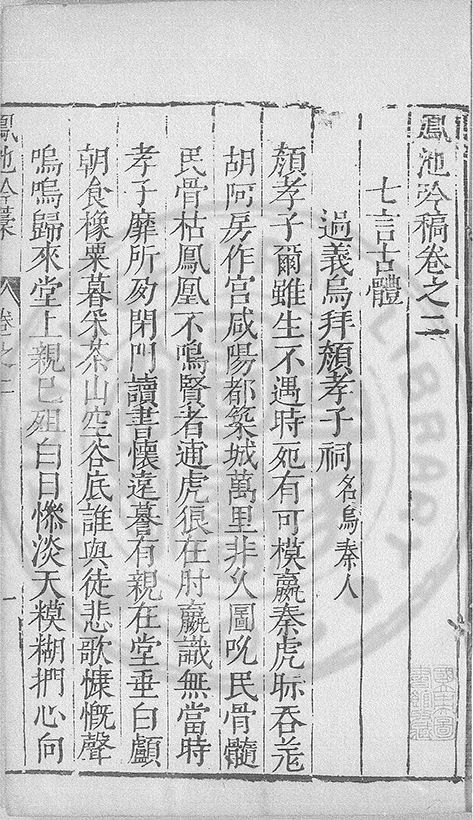 鳳池吟稿卷之二
七言古體
過義烏拜顏孝子祠名烏秦人
顏孝子爾雖生不遇時死有可模嬴秦虎眎吞羌
胡阿房作宮咸陽都築城萬里非久圖吮民骨髓
民骨枯鳳凰不鳴賢者逋虎狼在肘嬴識無當時
孝子靡所為閉門讀書懷遠謩有親在堂垂白顱
朝食橡栗暮采荼山空谷底誰與徒悲歌慷慨聲
嗚嗚歸來堂上親已殂白日慘淡天糢糊捫心向
鳳池吟稾
卷之二
一